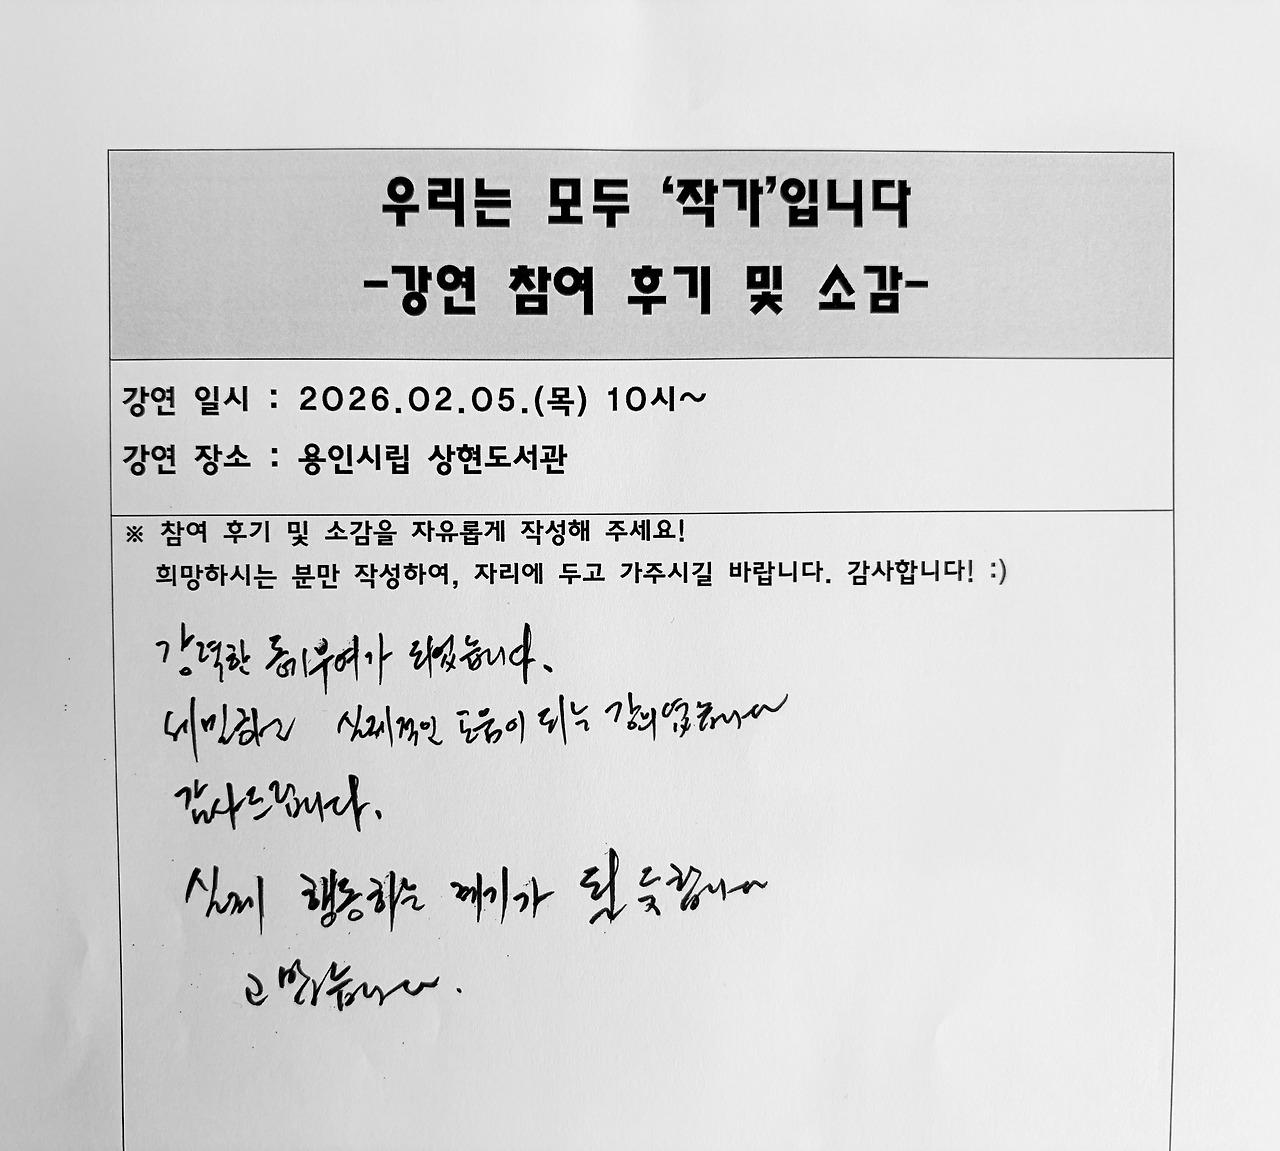 우리는 모두 ‘작가’입니다
-강연 참여 후기 및 소감-
강연 일시 : 2026.02.05.(목) 10시~
강연 장소 : 용인시립 상현도서관
※ 참여 후기 및 소감을 자유롭게 작성해 주세요!
희망하시는 분만 작성하여, 자리에 두고 가주시길 바랍니다. 감사합니다! :)
강력한 동기부여가 되었습니다.
세밀하고 실제적인 도움이 되는 강의였습니다
감사드립니다.
실제 행동하는 계기가 될 듯합니다
고맙습니다.